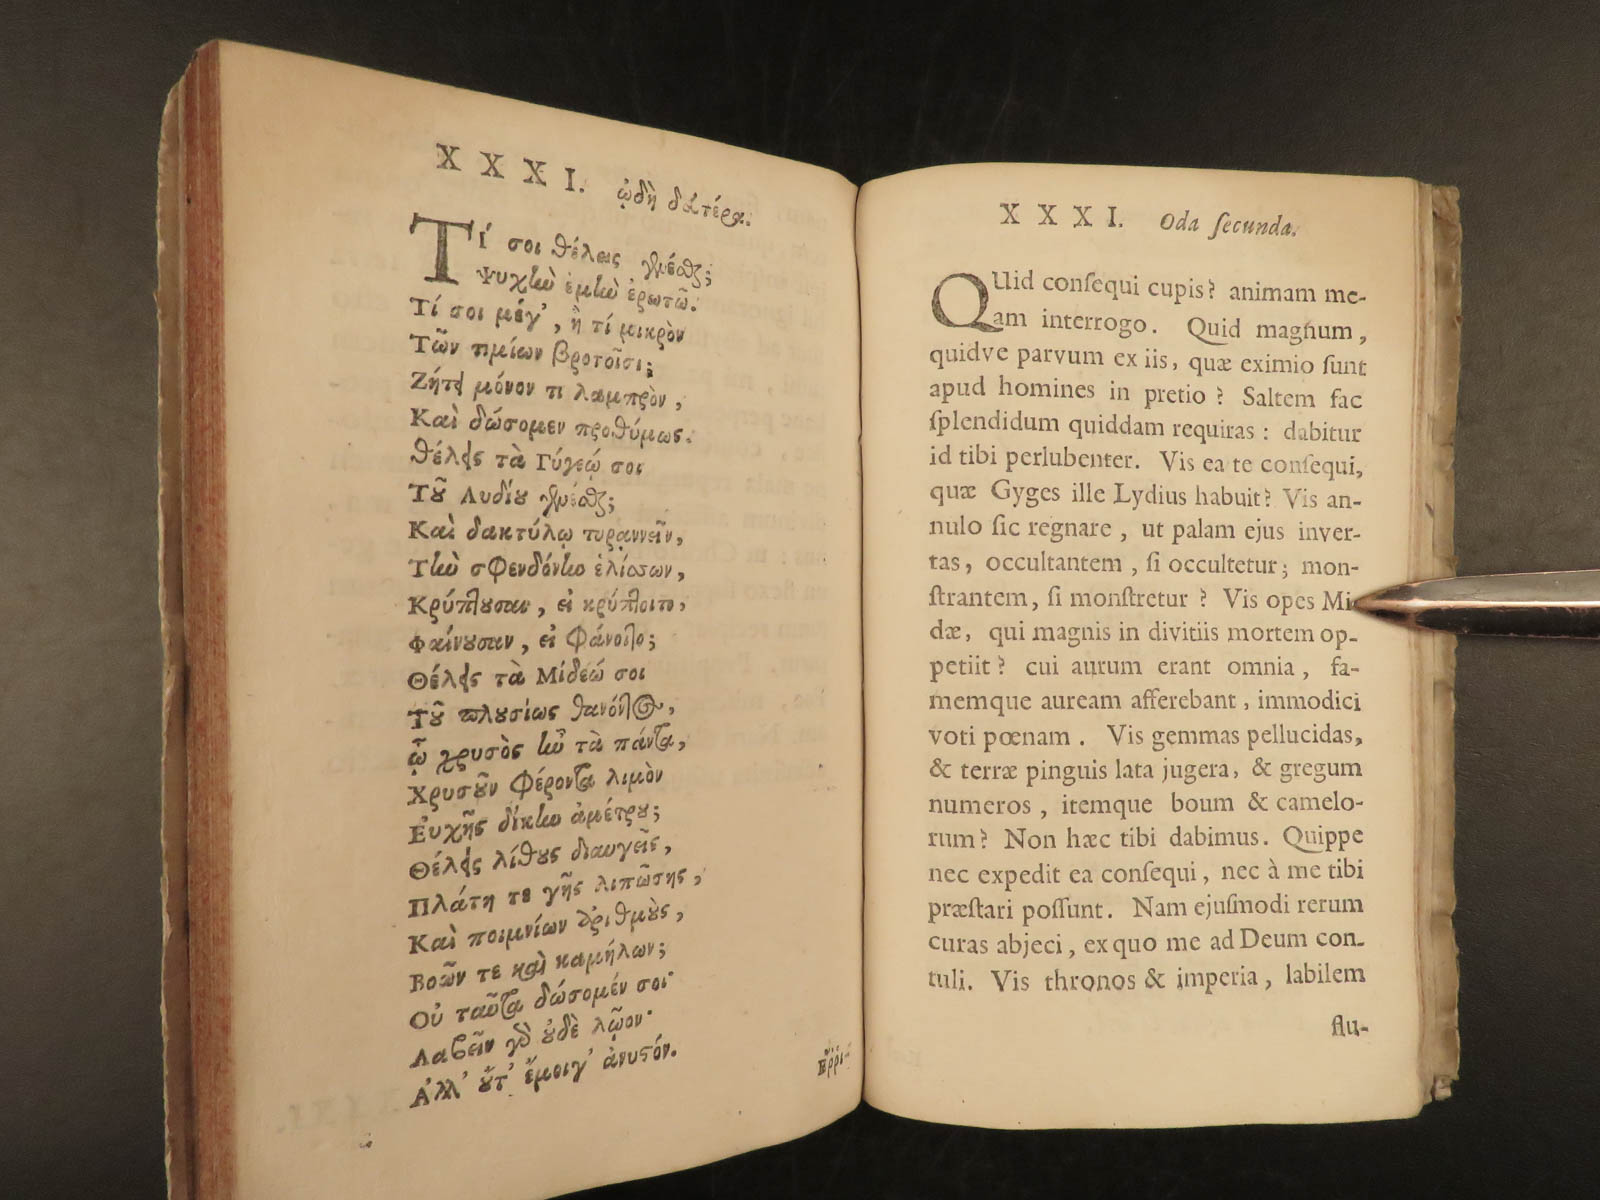 XXXI. ᾠδὴ δευτέρα.
Τί σοι θέλεις γενέσθαι;
Ψυχὴν ἐμὴν ἐρωτῶ.
Τί σοι μέγ', ἢ τί μικρὸν
Τῶν τιμίων βροτοῖσι;
Ζήτει μόνον τι λαμπρὸν,
Καὶ δώσομεν προθύμως.
Θέλεις τὰ Γύγεώ σοι
Τοῦ Λυδίου γενέσθαι;
Καὶ δακτύλῳ τυραννεῖν,
Τὴν σφενδόνην ἑλίσσων,
Κρύπτουσαν, εἰ κρύπτοιτο,
Φαίνουσαν, εἰ φάνοιτο;
Θέλεις τὰ Μίδεώ σοι
Τοῦ πλουσίως θανόντος,
ᾧ χρυσὸς ἦν τὰ πάντα,
Χρυσοῦν φέροντα λιμὸν
Εὐχῆς δίκην ἀμέτρου;
Θέλεις λίθους διαυγεῖς,
Πλάτη τε γῆς λιπώσης,
Καὶ ποιμνίων ἀριθμοὺς,
Βοῶν τε καὶ καμήλων;
Οὐ ταῦτα δώσομέν σοι·
Λαβεῖν γὰρ οὐδὲ λῷον·
Ἀλλ' οὔτ' ἔμοιγ' ἀνυστόν.
Εῤῥι-
XXXI. Oda ſecunda.
QUid conſequi cupis? animam me-
am interrogo. Quid magnum,
quidve parvum ex iis, quæ eximio ſunt
apud homines in pretio? Saltem fac
ſplendidum quiddam requiras: dabitur
id tibi perlubenter. Vis ea te conſequi,
quæ Gyges ille Lydius habuit? Vis an-
nulo ſic regnare, ut palam ejus inver-
tas, occultantem, ſi occultetur; mon-
ſtrantem, ſi monſtretur? Vis opes Mi-
dæ, qui magnis in divitiis mortem op-
petiit? cui aurum erant omnia, fa-
memque auream afferebant, immodici
voti pœnam. Vis gemmas pellucidas,
& terræ pinguis lata jugera, & gregum
numeros, itemque boum & camelo-
rum? Non hæc tibi dabimus. Quippe
nec expedit ea conſequi, nec à me tibi
præſtari poſſunt. Nam ejuſmodi rerum
curas abjeci, ex quo me ad Deum con-
tuli. Vis thronos & imperia, labilem
flu-